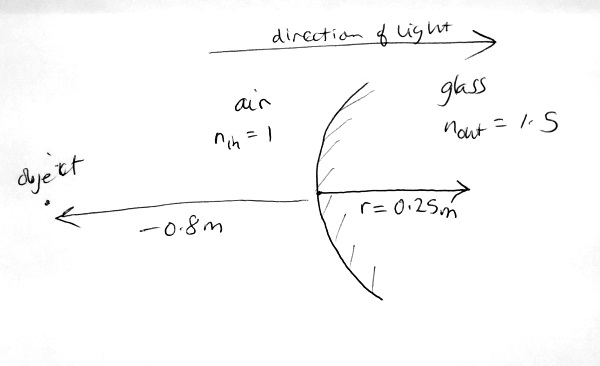 direction of light
air
n_in = 1
glass
n_out = 1.5
object
-0.8m
r = 0.25m